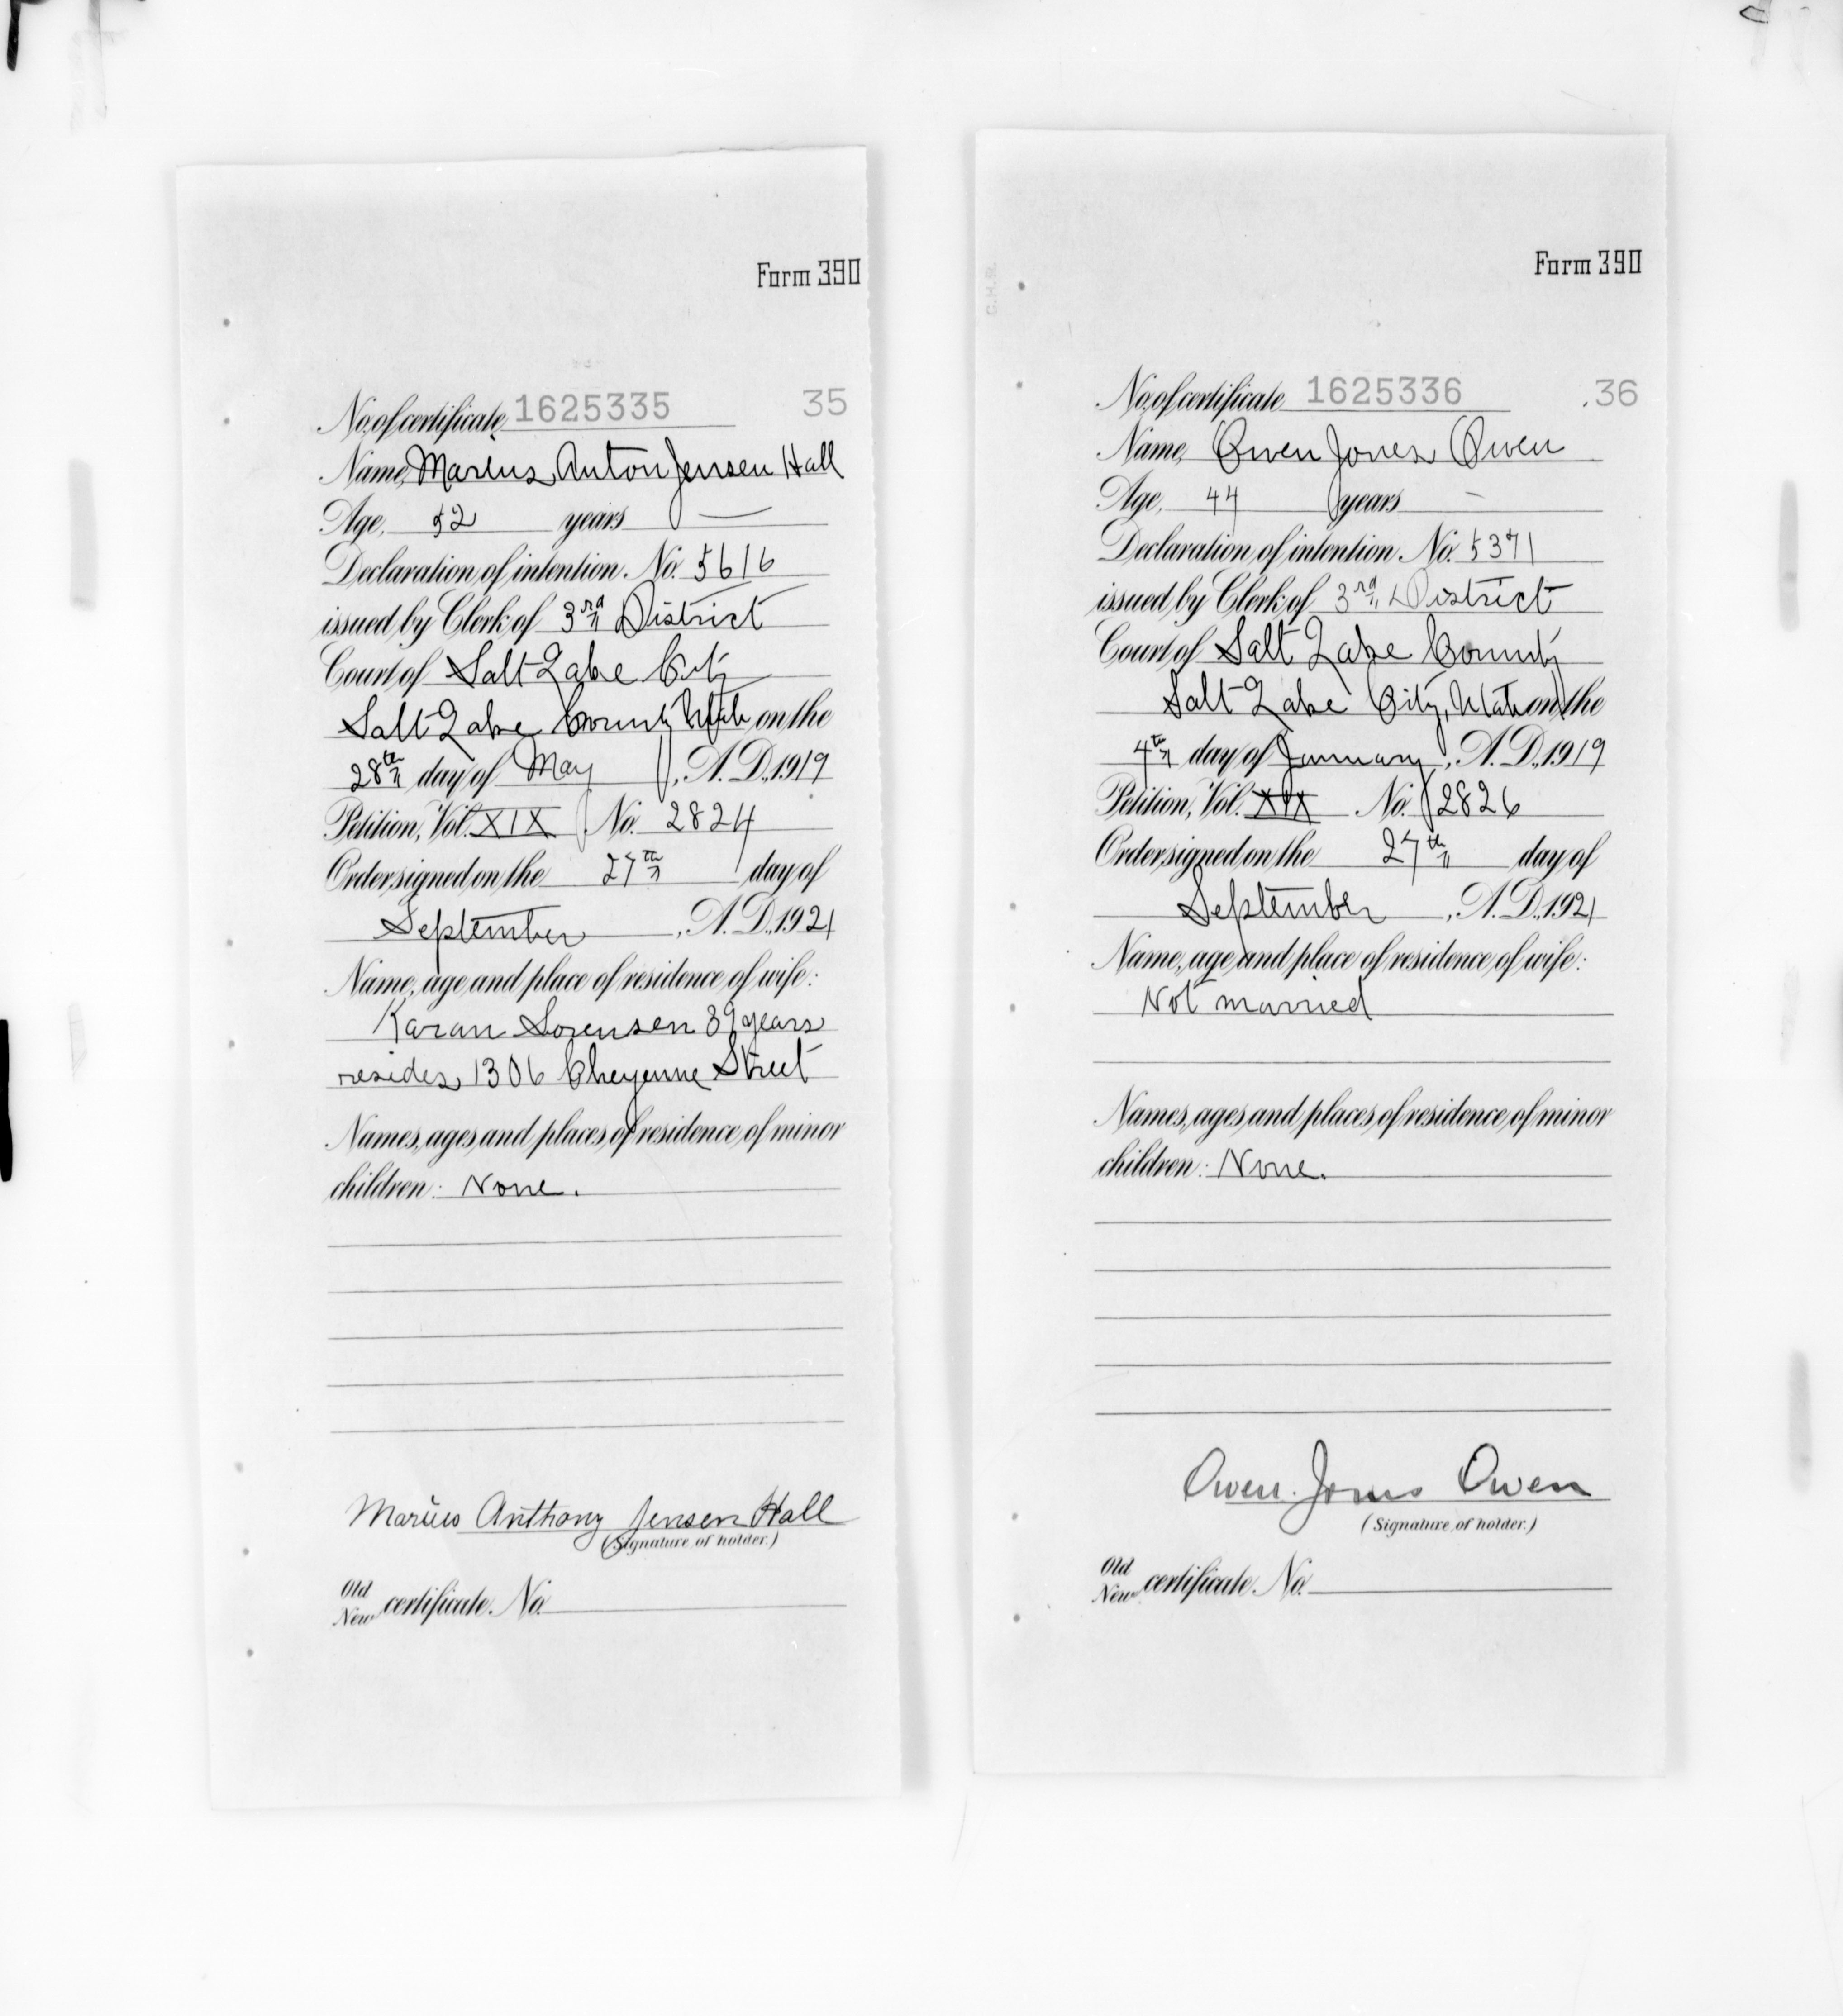 Form 390
No. of certificate, 1625335 35
Name, Marius Anton Jensen Hall
Age, 52 years —
Declaration of intention No. 5616
issued by Clerk of 3rd District
Court of Salt Lake City
Salt Lake County Utah on the
28th day of May, A.D., 1919
Petition, Vol. XIX No. 2824
Order signed on the 27th day of
September, A.D., 1921
Name, age and place of residence of wife:
Karan Sorensen 39 years
resides 1306 Cheyenne Street
Names, ages and places of residence of minor
children: None.
Marius Anthony Jensen Hall
(Signature of holder.)
Old
New certificate No.
Form 390
No. of certificate, 1625336 .36
Name, Owen Jones Owen
Age, 44 years –
Declaration of intention No. 5371
issued by Clerk of 3rd District
Court of Salt Lake County
Salt Lake City, Utah on the
4th day of January, A.D., 1919
Petition, Vol. XIX No. 2826
Order signed on the 27th day of
September, A.D., 1921
Name, age and place of residence of wife:
Not married
Names, ages and places of residence of minor
children: None.
Owen Jones Owen
(Signature of holder.)
Old
New certificate No.